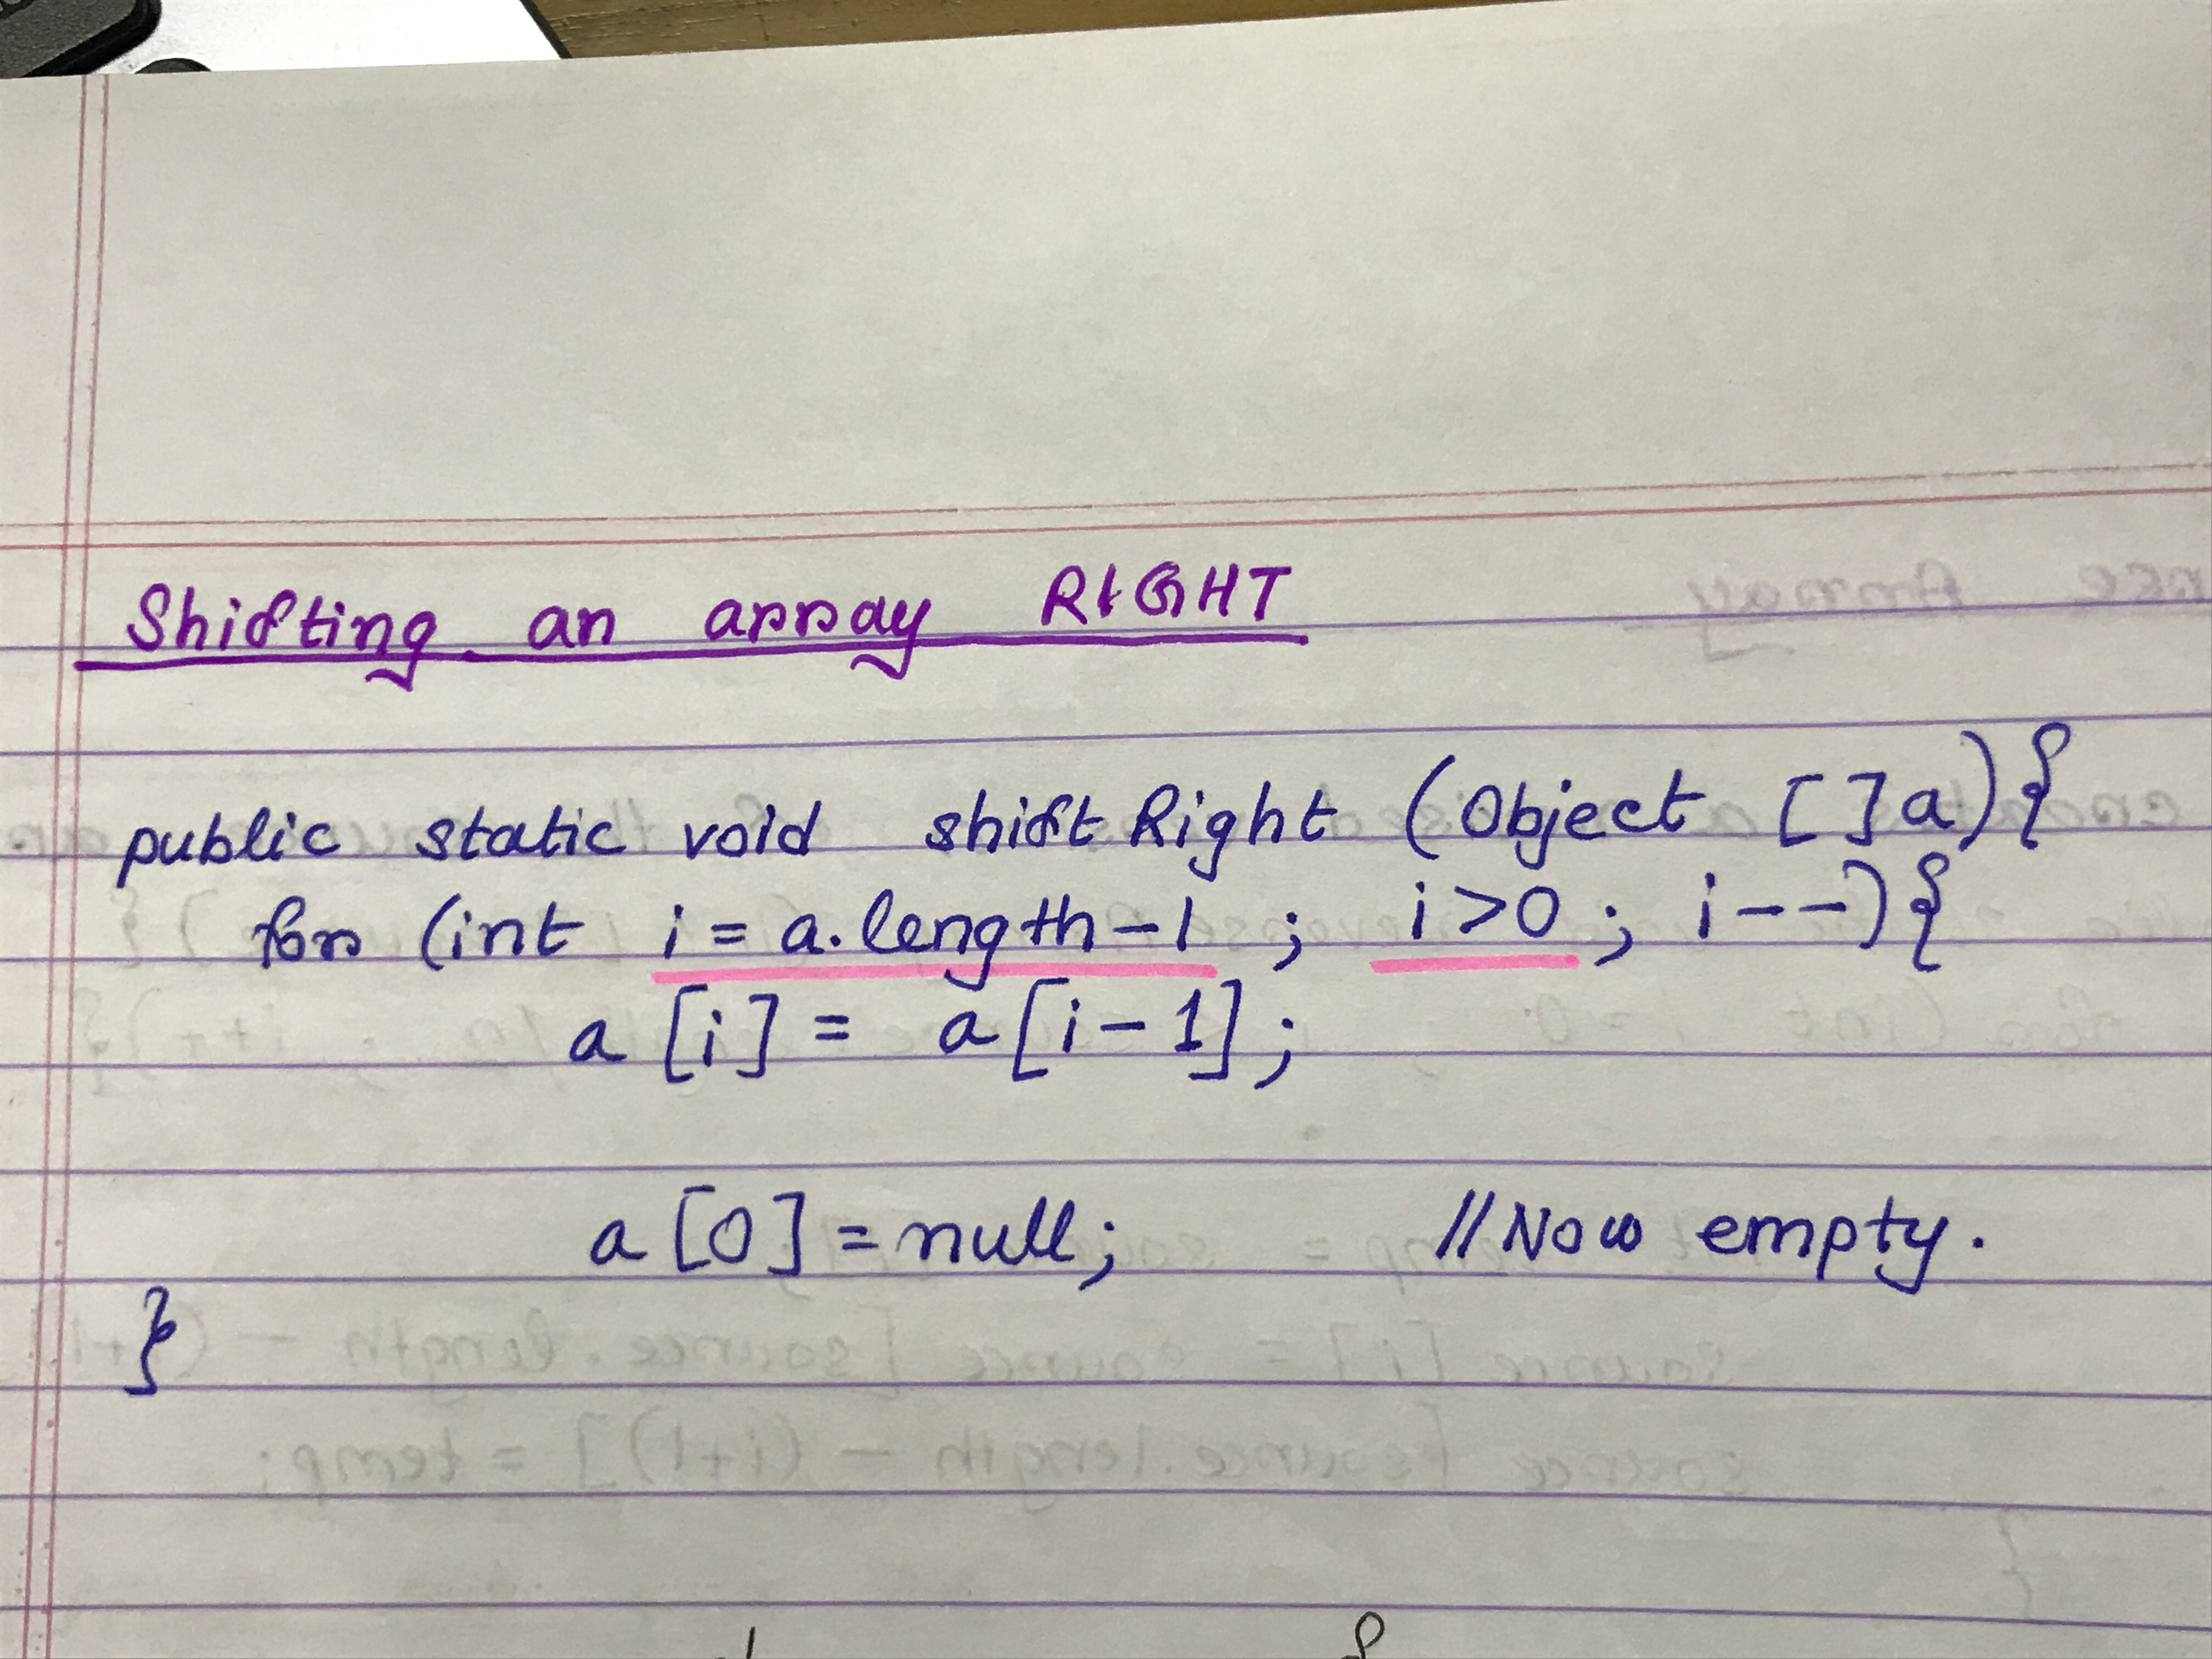 Shifting an array RIGHT
public static void shiftRight (Object [] a) {
for (int i = a.length-1 ; i>0 ; i--) {
a [i] = a[i-1];
a [0] = null; //Now empty.
}